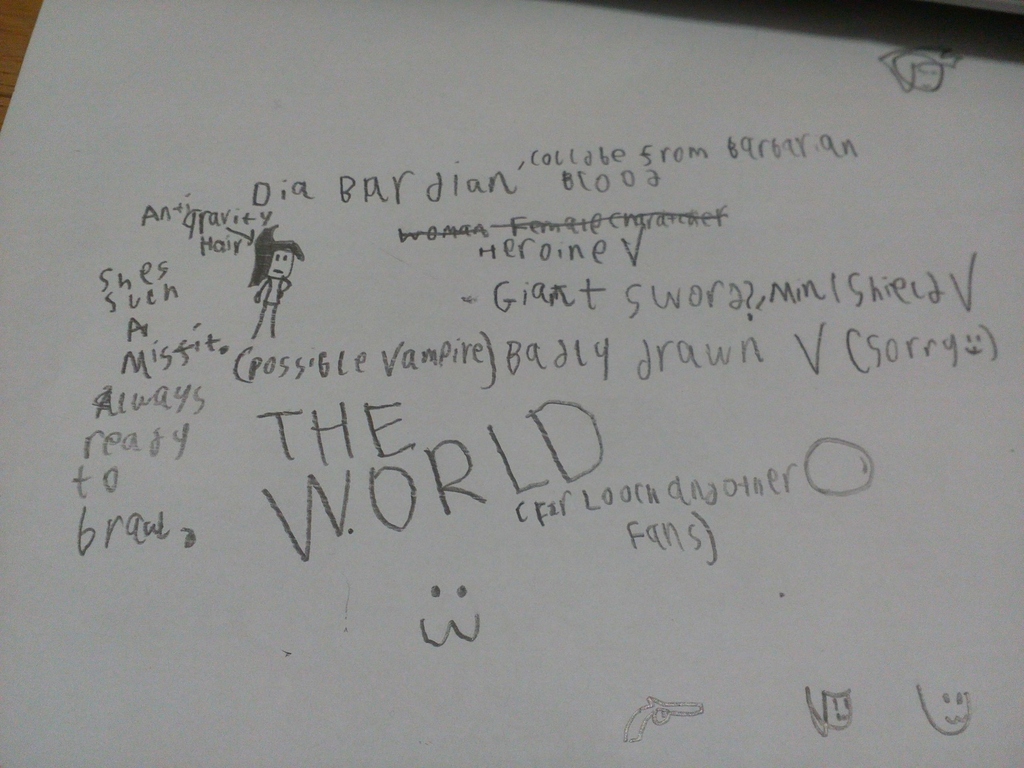 Dia Bardian, collabe from Barbarian
Blood
Anti
gravity
Hair
Woman Female Character
Heroine V
- Giant sword?, Mini shield V
(possible Vampire) Badly drawn V (sorry :))
shes
such
A
Misfit.
Always
ready
to
brawl.
THE
WORLD
(For Looch and other
Fans)
:3